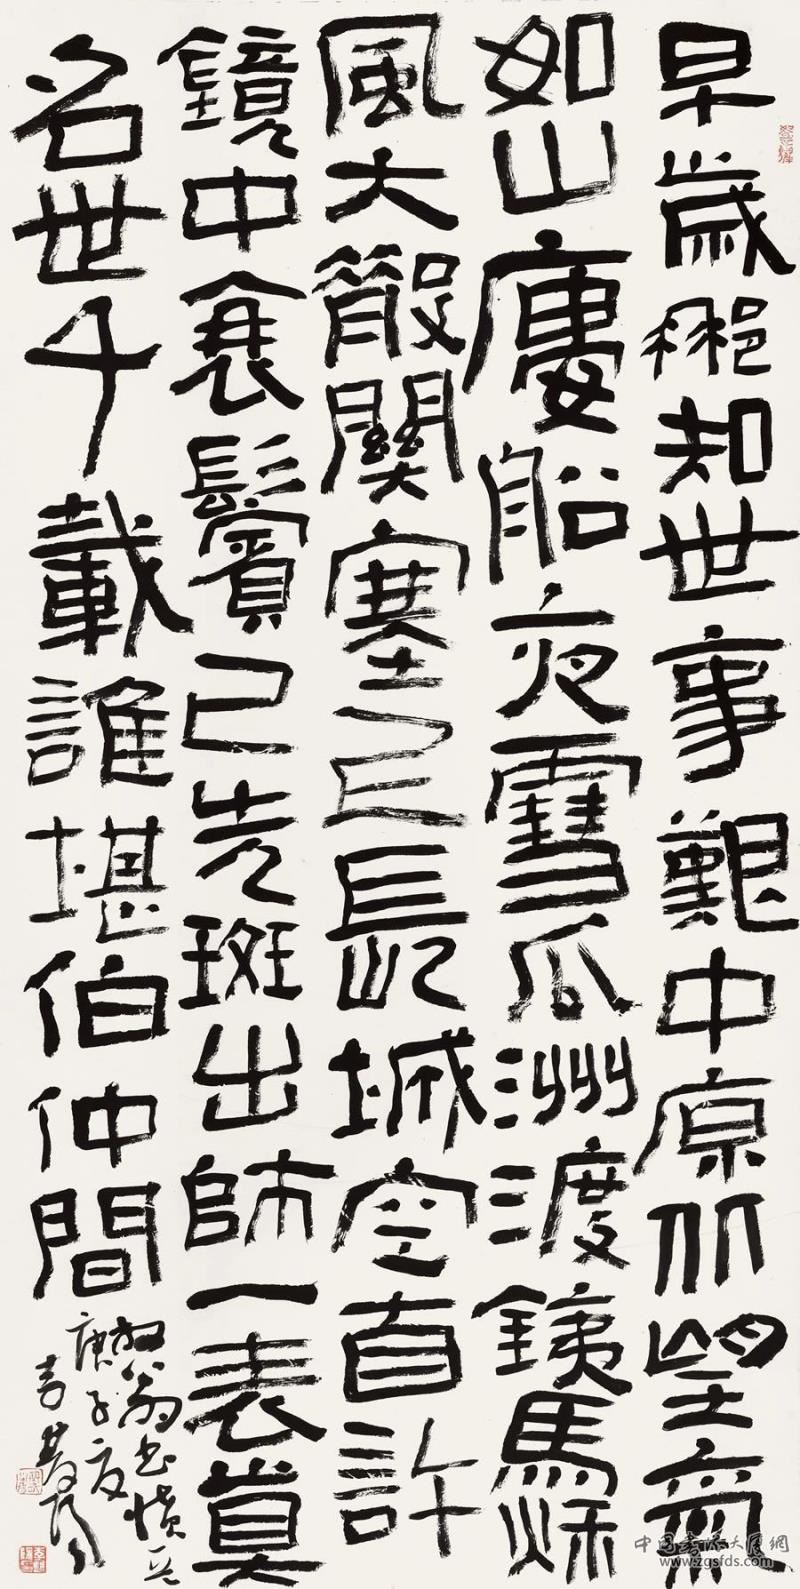 早歲那知世事艱中原北望氣
如山廔船夜雪瓜洲渡銕馬秋
風大散關塞上長城空自許
鏡中衰鬢已先斑出師一表真
名世千載誰堪伯仲間
放翁书愤
庚子夏
www.zgsfds.com